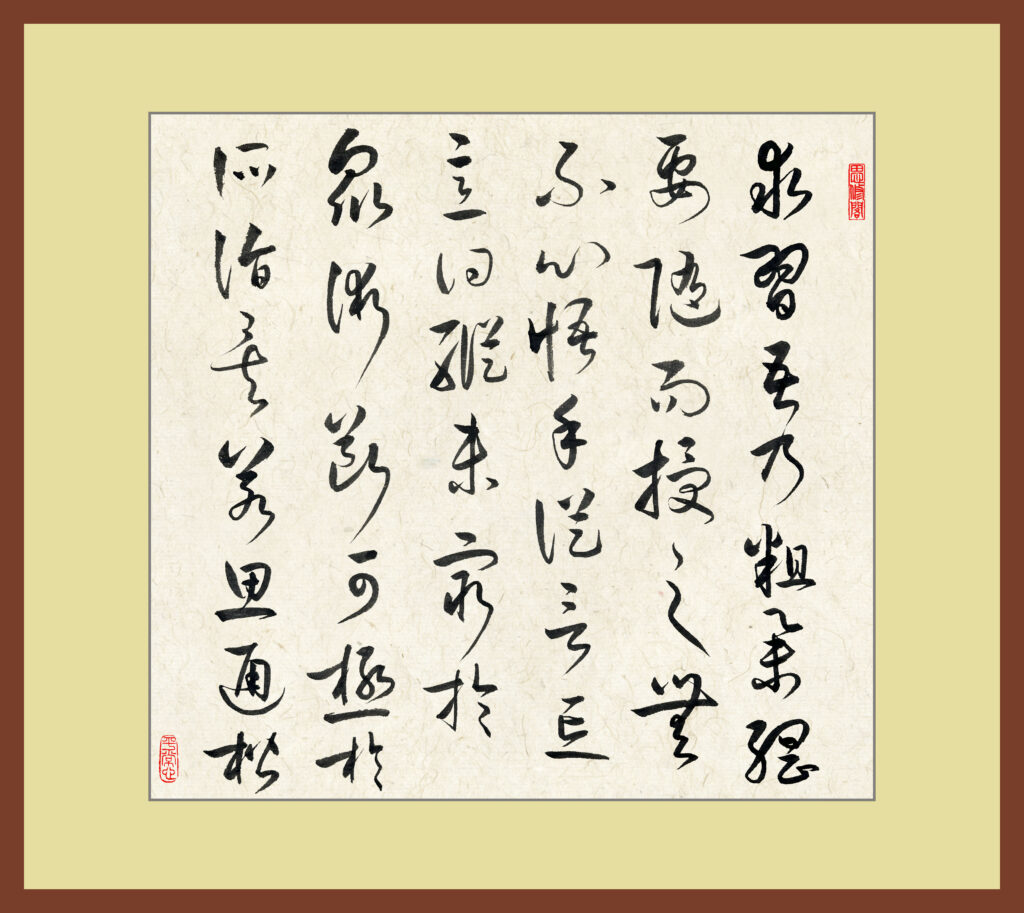 求習吾乃粗舉綱
要隨而授之無
不心悟手從言忘
意得縱未窮於
眾術斷可極於
所詣矣若思通楷